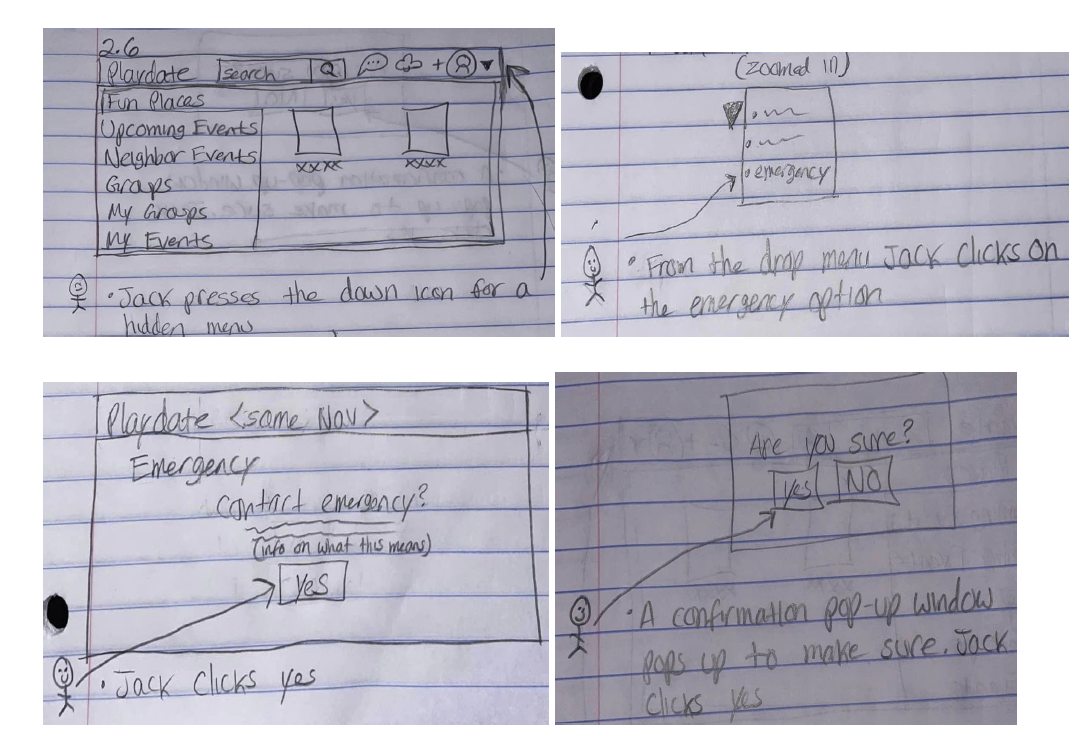 2.6
Playdate search
Fun Places
Upcoming Events
Neighbor Events
Groups
My Groups
My Events
xxxx xxxx
• Jack presses the down icon for a
hidden menu
(zoomed in)
• emergency
• From the drop menu Jack clicks on
the emergency option
Playdate <same Nav>
Emergency
Contact emergency?
(info on what this means)
Yes
• Jack clicks yes
Are you sure?
Yes NO
• A confirmation pop-up window
pops up to make sure. Jack
clicks yes